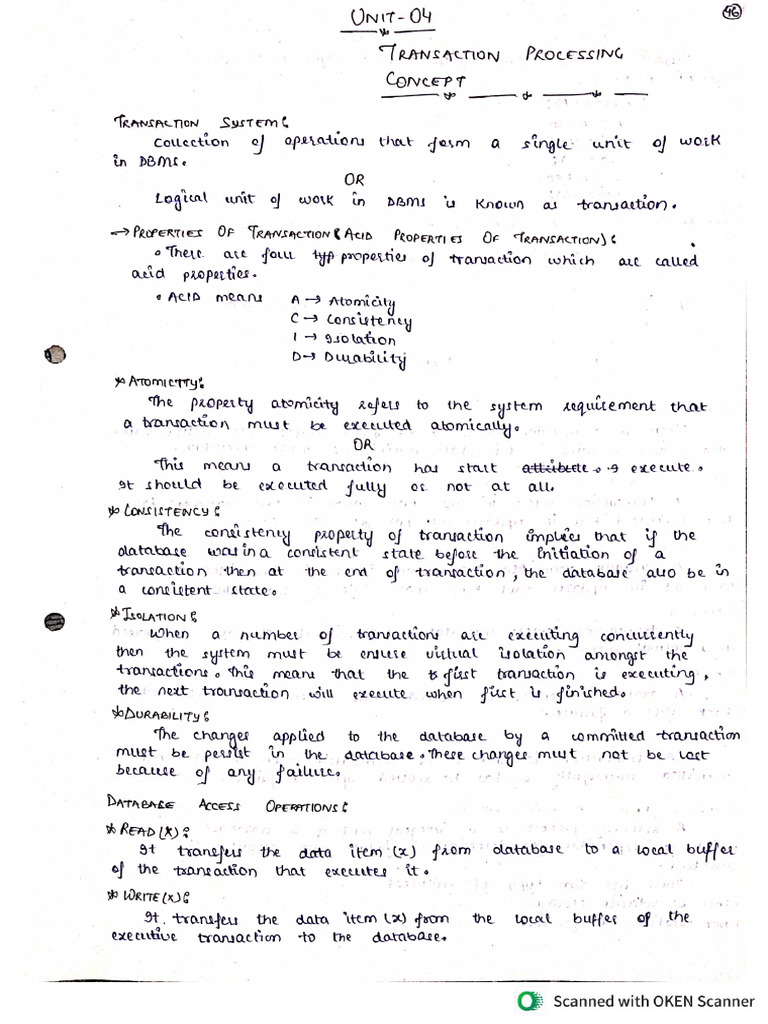 UNIT-04
46
TRANSACTION PROCESSING
CONCEPT
TRANSACTION SYSTEM:
Collection of operations that form a single unit of work
in DBMS.
OR
Logical unit of work in DBMS is known as transaction.
→ PROPERTIES OF TRANSACTION (ACID PROPERTIES OF TRANSACTION):
• There are four typ properties of transaction which are called
acid properties.
• ACID means A → Atomicity
C → Consistency
I → Isolation
D → Durability
* ATOMICTTY:
The property atomicity refers to the system requirement that
a transaction must be executed atomically.
OR
This means a transaction has start attribute. execute.
It should be executed fully or not at all.
* CONSISTENCY:
The consistency property of transaction implies that if the
database was in a consistent state before the initiation of a
transaction then at the end of transaction, the database also be in
a consistent state.
* ISOLATION:
When a number of transactions are executing concurrently
then the system must be ensure virtual isolation amongst the
transactions. This means that the first transaction is executing,
the next transaction will execute when first is finished.
* DURABILITY:
The changes applied to the database by a committed transaction
must be persist in the database. These changes must not be lost
because of any failure.
DATABASE ACCESS OPERATIONS:
* READ(X):
It transfers the data item (x) from database to a local buffer
of the transaction that executes it.
* WRITE(X):
It. transfers the data item (x) from the local buffer of the
executive transaction to the database.
Scanned with OKEN Scanner